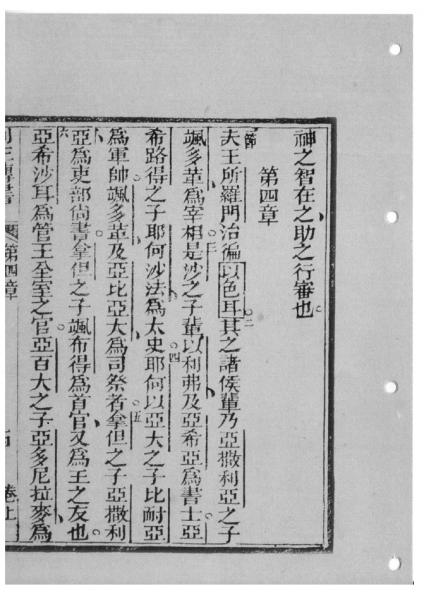 神之智在之助之行審也
第四章
夫王所羅門治徧以色耳其之諸侯輩乃亞撒利亞之子
颯多革為宰相是沙之子輩以利弗及亞希亞為書士亞
希路得之子耶何沙法為太史耶何以亞大之子比耐亞
為軍帥颯多革及亞比亞大為司祭者拿但之子亞撒利
亞為吏部尚書拿但之子颯布得為首官又為王之友也
亞希沙耳為管王全室之官亞百大之子亞多尼拉麥為
第四章 卷上